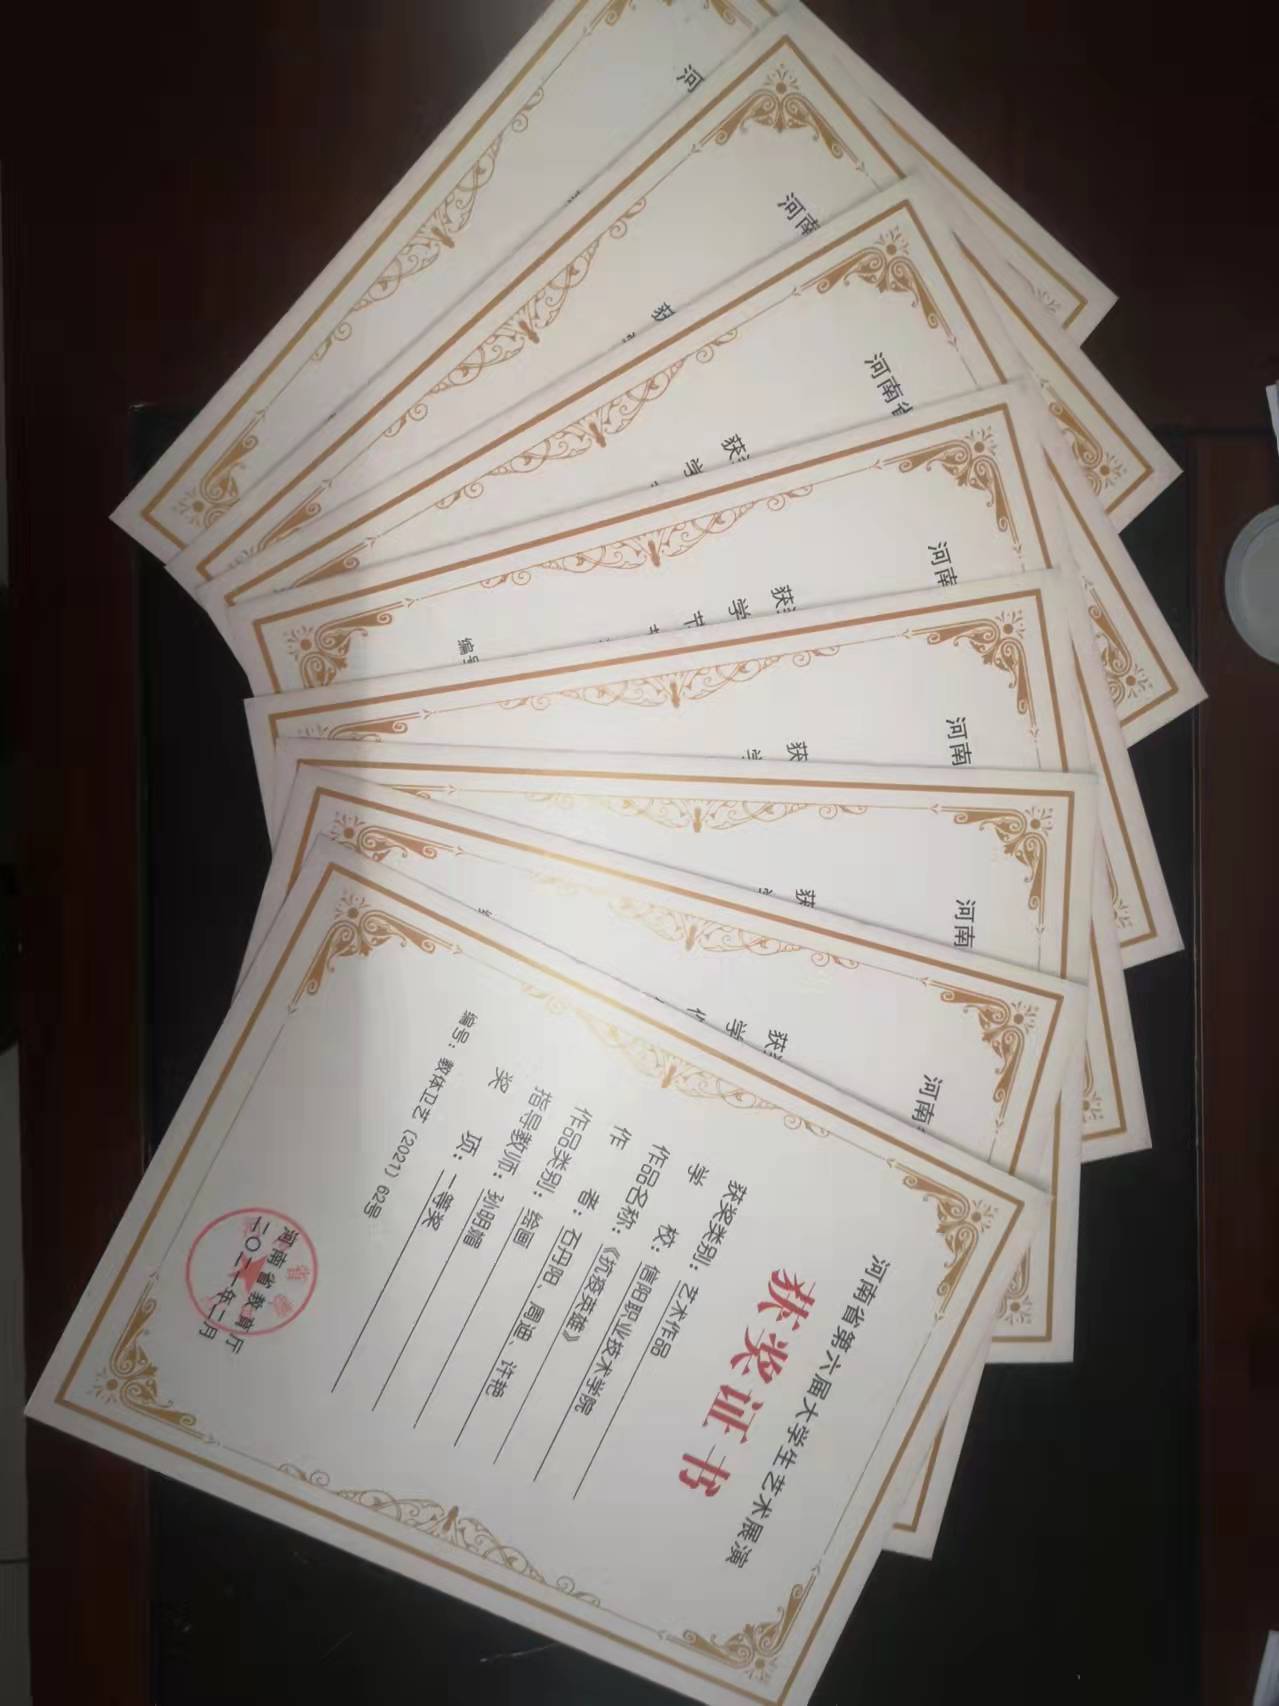 河南省第六届大学生艺术展演
获奖证书
获奖类别：艺术作品
学 校：信阳职业技术学院
作品名称：《抗疫英雄》
作 者：石丹阳、周迪、许艳
作品类别：绘画
指导教师：孙明娟
奖 项：一等奖
编号：教体卫艺〔2021〕62号
河南省教育厅
二〇二一年二月
河南
获
学
河南
获
河南
获
学
河南
获
学
节
编号
河南省
获
学
河南
获
河